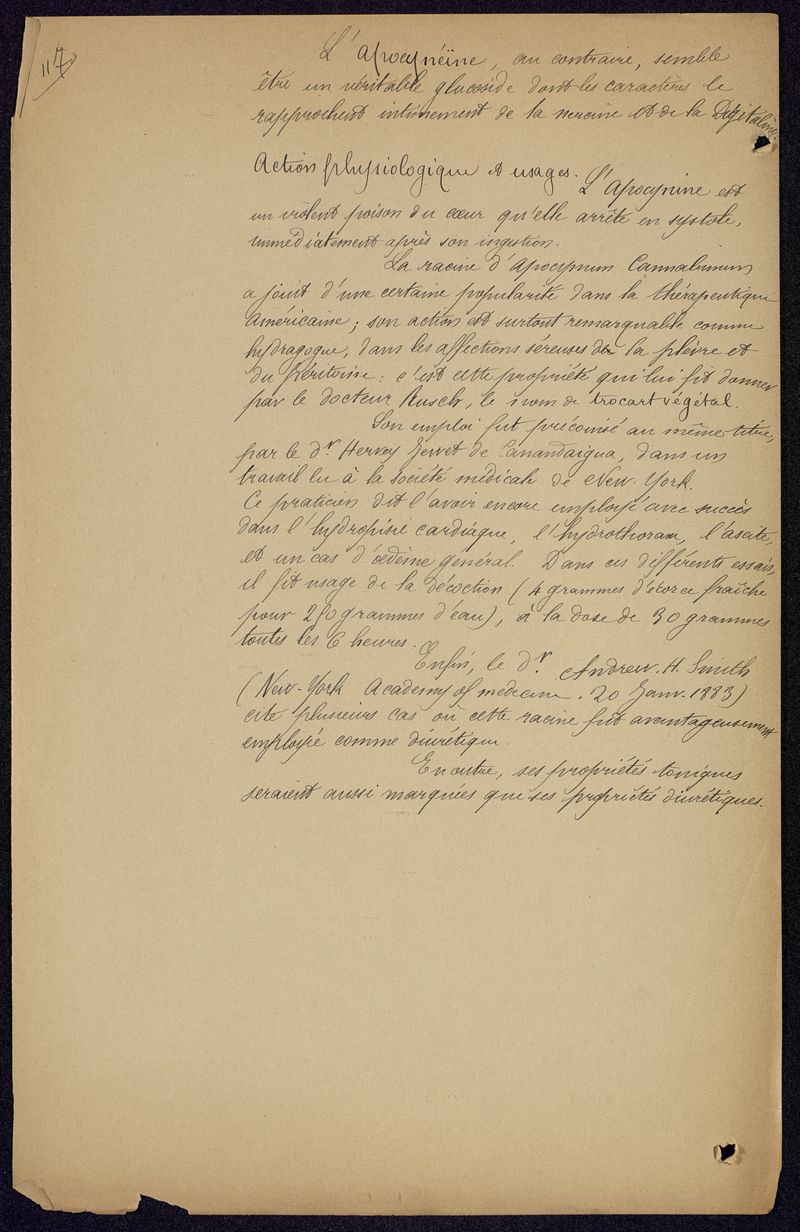 117
L'Apocynéïne, au contraire, semble
être un véritable glucoside dont les caractères le
rapprochent intimement de la nereine et de la Digitaline.
Action physiologique et usages. L'Apocynine est
un violent poison du cœur qu'elle arrête en systole,
immédiatement après son ingestion.
La racine d'Apocynum Cannabinum
a joui d'une certaine popularité dans la thérapeutique
Américaine; son action est surtout remarquable comme
hydragogue, dans les affections séreuses de la plèvre et
du Péritoine: c'est cette propriété qui lui fit donner
par le docteur Rusch, le nom de trocart végétal.
Son emploi fut préconisé au même titre,
par le dr. Hervey Jewet de Canandaigua, dans un
travail lu à la société médicale de New-York.
Ce praticien dit l'avoir encore employé avec succès
dans l'hydropisie cardiaque, l'hydrothorax, l'ascite,
et un cas d'œdème général. Dans ces différents essais,
il fit usage de la décoction (4 grammes d'écorce fraîche
pour 250 grammes d'eau), à la dose de 30 grammes
toutes les 6 heures.
Enfin, le dr. Andrew. H. Smith
(New-York Academy of médecine. 20 Janv. 1883)
cite plusieurs cas où cette racine fut avantageusement
employé comme diurétique.
En outre, ses propriétés toniques
seraient aussi marquées que ses propriétés diurétiques.